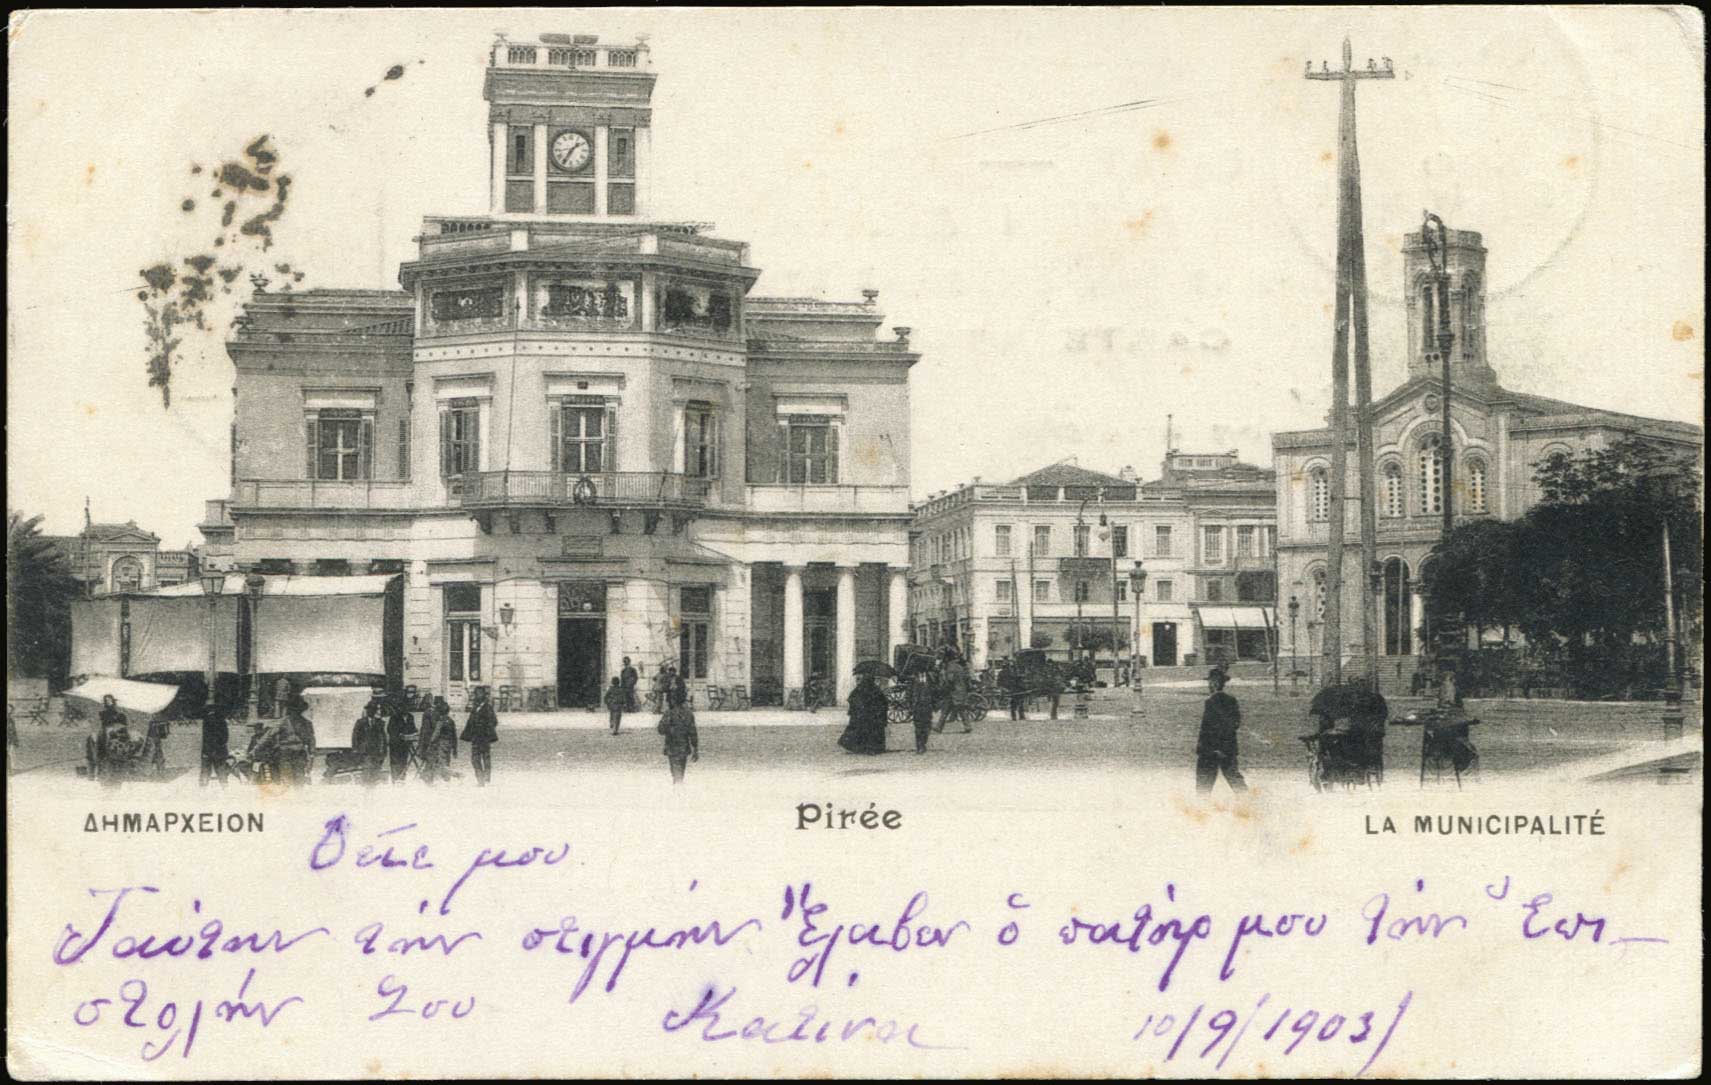 ΔΗΜΑΡΧΕΙΟΝ Pirée LA MUNICIPALITÉ
Θεῖε μου
Ταύτην τὴν στιγμὴν Ἔλαβεν ὁ πατὴρ μου τὴν Ἐπι-
στολὴν Σου Κατίνα 10/9/1903